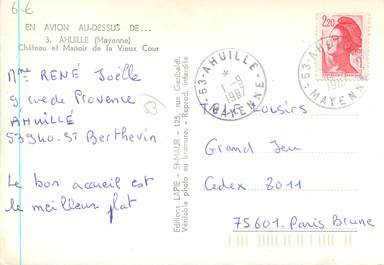 6 €
EN AVION AU-DESSUS DE...
3. AHUILLE (Mayenne)
Château et Manoir de la Vieux Cour
Mme RENÉ Joëlle
9 rue de Provence
AHUILLÉ
53940. St Berthevin
Le bon accueil est
le meilleur plat
53
Editions LAPIE - St-MAUR - 125, rue Garibaldi.
Véritable photo au bromure. - Reprod. interdite
53-AHUILLE-
* 1-9
1987
MAYENNE
2,20
53-AHUILLE
1987
MAYENNE
TELE Loisirs
Grand Jeu
Cedex 2011
75601. Paris Brune